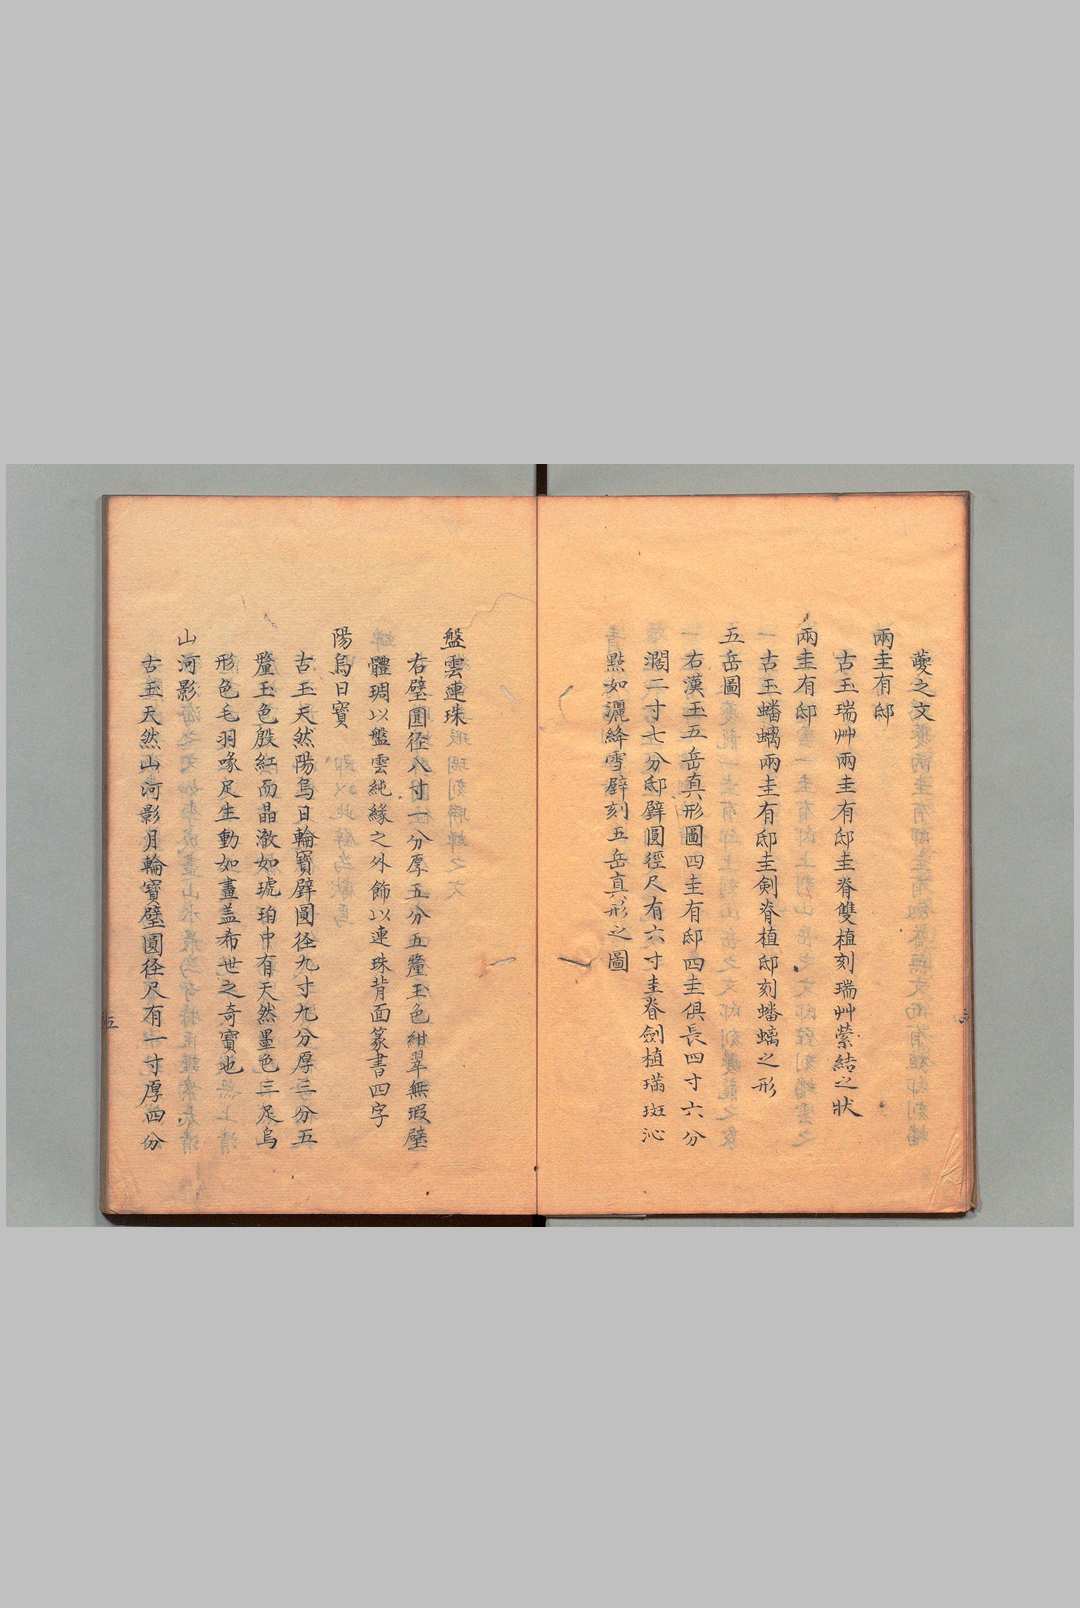 夔之文
兩圭有邸
古玉瑞艸兩圭有邸圭脊雙植刻瑞艸縈結之狀
兩圭有邸
古玉蟠螭兩圭有邸圭剣脊植邸刻蟠螭之形
五岳圖
右漢玉五岳真形圖四圭有邸四圭俱長四寸六分
濶二寸七分邸璧圓徑尺有六寸圭脊劍植璊斑沁
點如灑絳雪璧刻五岳真形之圖
盤雲連珠
右璧圓径八寸一分厚五分五釐玉色紺翠無瑕璧
體琱以盤雲純緣之外飾以連珠背面篆書四字
陽烏日寳
古玉天然陽烏日輪寳璧圓径九寸九分厚三分五
釐玉色殷紅而晶澈如琥珀中有天然墨色三足烏
形色毛羽喙足生動如畫盖希世之奇寳也
山河影
古玉天然山河影月輪寳璧圓径尺有一寸厚四分